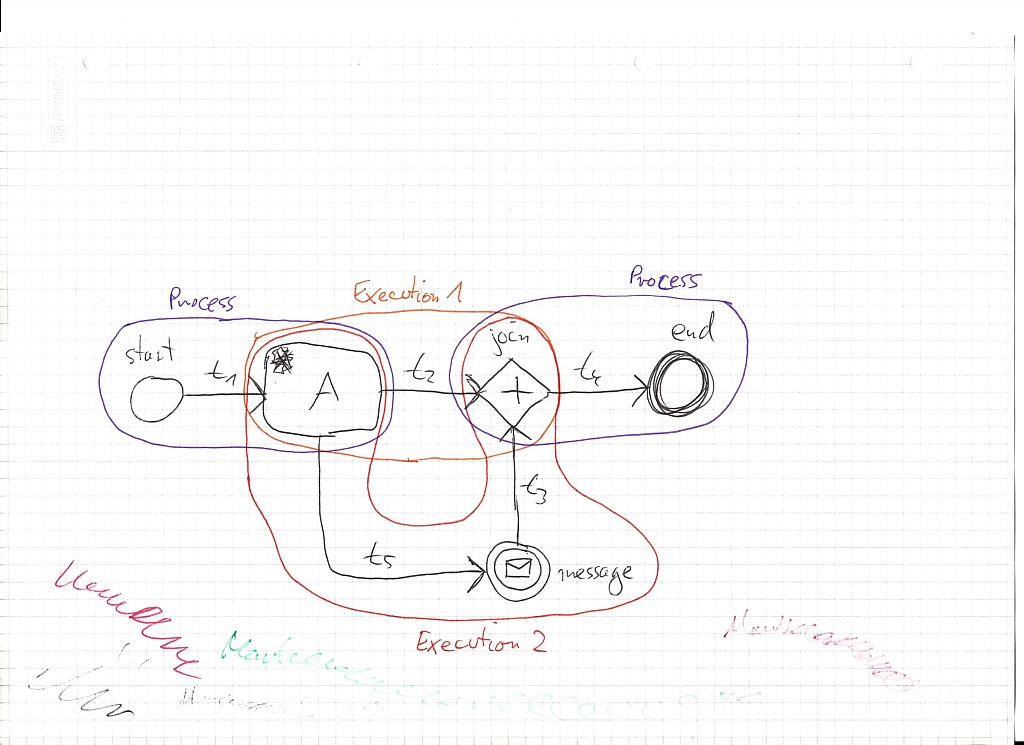 Process
Execution 1
Process
start
t1
A
t2
join
t4
end
t3
t5
message
Execution 2